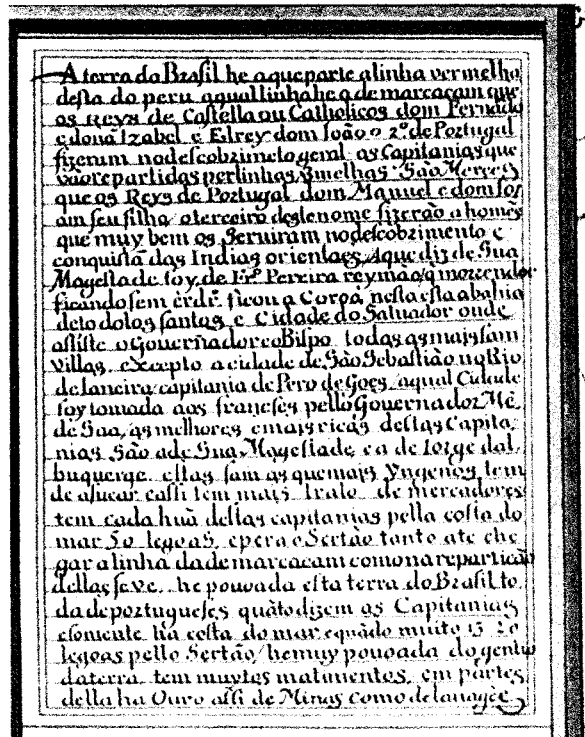 A terra do Brasil he aqueparte alinha vermelha
desta do peru aqual linha he a de marcacam que
os Reys de Castella ou Catholicos dom Fernãdo
e donã Izabel e Elrey dom Ioão o 2º de Portugal
fizerum nodescobrimeto geral as Capitanias que
vão repartidas per linhas Vmelhas São Merces
que os Reys de Portugal dom Manuel e dom Ioj
am seu filho oterceiro destenome fizerão a homẽs
que muy bem os Serviram nodescobrimento e
conquista das Indias orientaes, Aque diz de Sua
Magestade foy de Frº Pereira reymão q morrendo
ficando sem erdrº ficou a Coroa nesta esta abahia
detodolos santos e Cidade do Saluador onde
assiste o Gouernador eo Bispo todas as mais sam
villas, excepto a cidade de São Sebastião no Rio
de Ianeiro capitania de Pero de Goes, aqual Cidade
foy tomada aos franceses pello Gouernador Mẽ
de Saa, as melhores e mais ricas destas Capita
nias São ade Sua Magestade, e a de Iorge dal
buquerge. estas sam as que mais Yngenos tem
de asucar casti tem mais trato de mercadores
tem cada huã destas capitanias pella costa do
mar 50 legoas, epera o Sertão tanto ate che
gar a linha da demarcacam como na reparticão
dellas se ve. he povoada esta terra do Brasil to
da de portugueses quãto dizem as Capitanias
esomente na costa do mar equãdo muito 15 20
legoas pello Sertão / he muy pouoada do gentio
da terra tem muytos matimentos, em partes
della ha Ouro assi de Minas como de lauagẽ